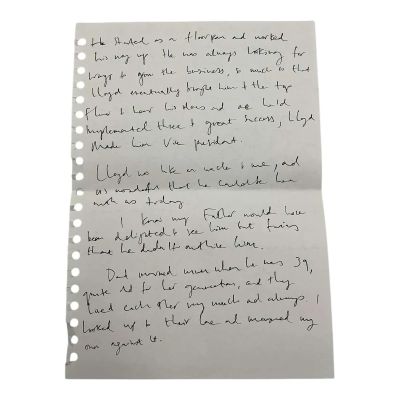 He started as a floorman and worked
his way up. He was always looking for
ways to grow the business, so much so that
Lloyd eventually bought him to the top
floor to hear his ideas and he he'd
implemented three to great success, Lloyd
made him Vice president.
Lloyd was like an uncle to me, and
its wonderful that he could be here
with us today
I know my Father would have
been delighted to see him but furious
that he didn't outlive him.
Dad married mum when he was 39,
quite old for her generation, and they
loved each other very much and always. I
looked up to their love and measured my
own against it.